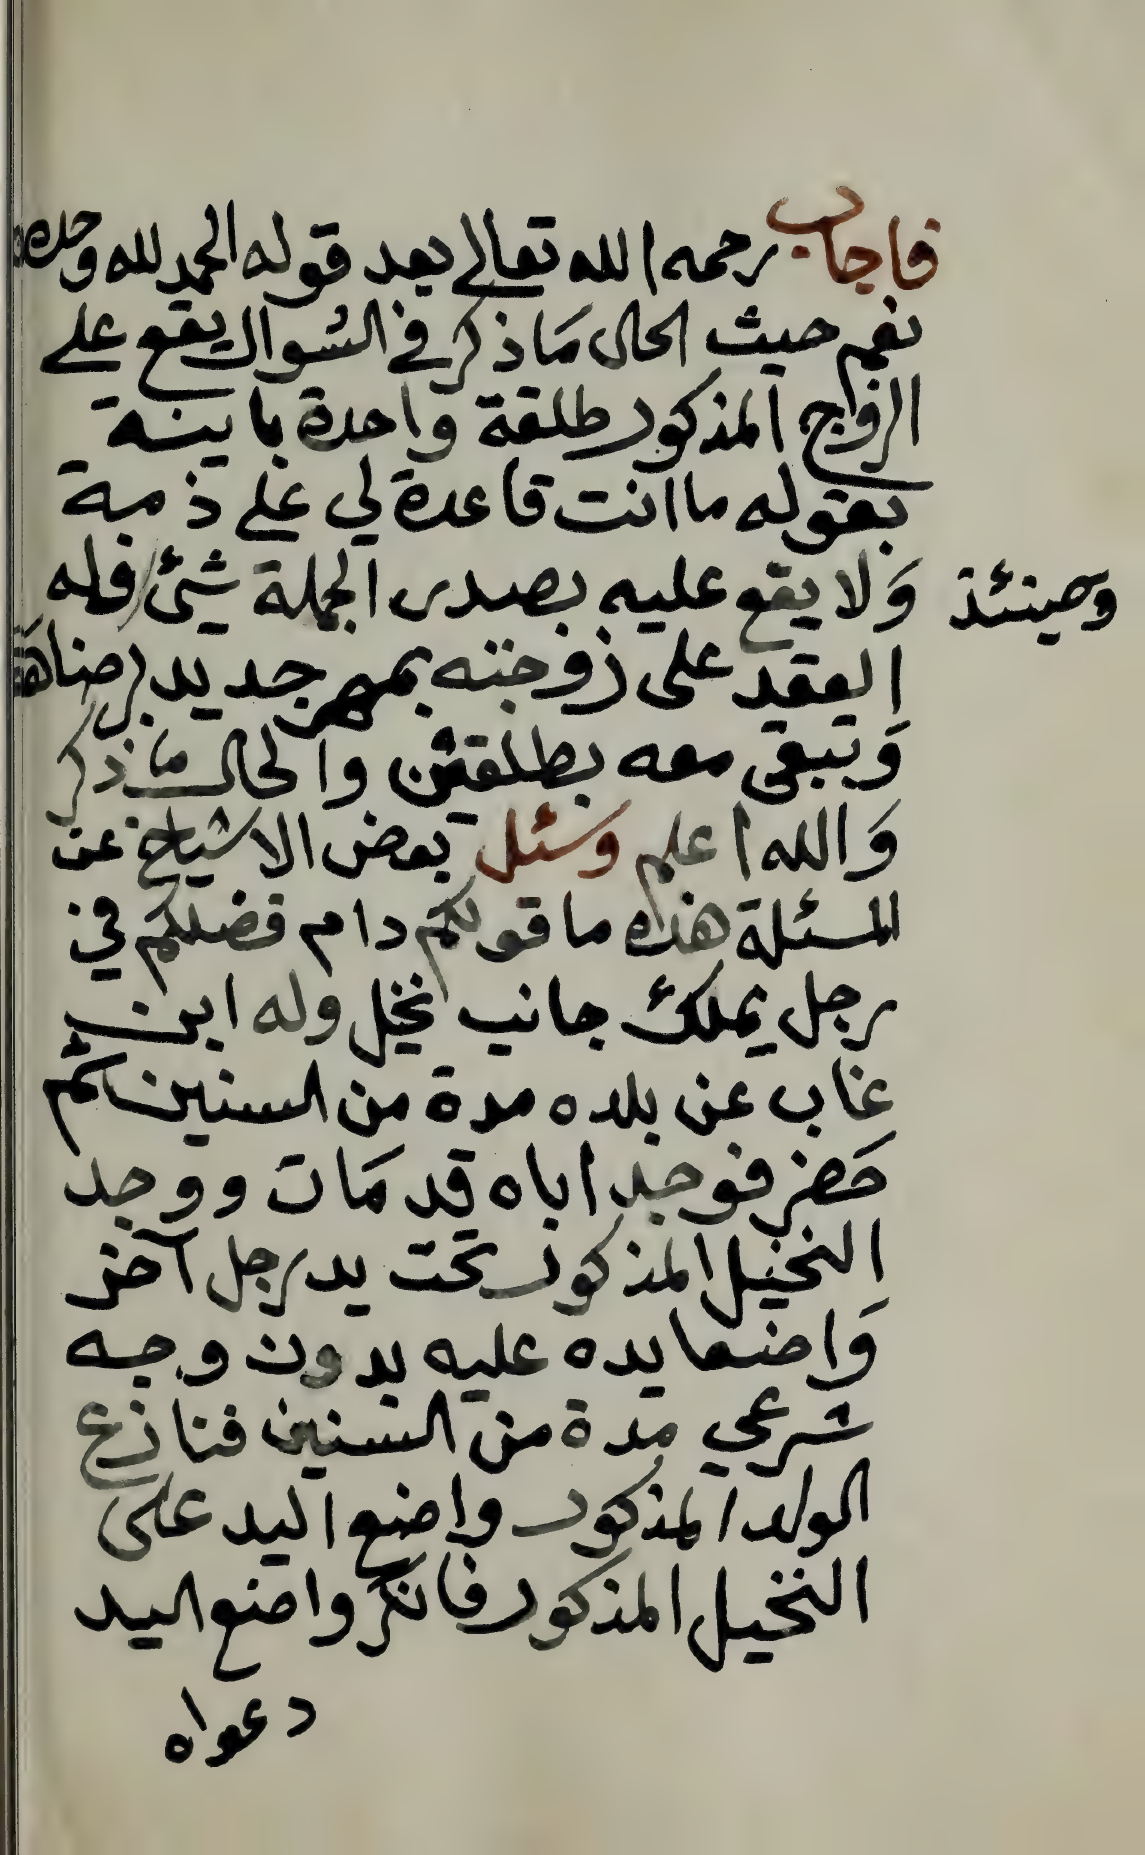 فاجاب رحمه الله تعالى بعد قوله الحمد لله وحده
نعم حيث الحال ما ذكر في السوال يقع على
الزوج المذكور طلقة واحدة باينة
بقوله ما انت قاعدة لي على ذمة
ولا يقع عليه بصدى الجملة شئ فله
وحينئذ
العقد على زوجته بمهر جديد برضاها
وتبقى معه بطلقتين والحال ما ذكر
والله اعلم وسئل بعض الاشياخ عن
المسئلة هذه ما قولكم دام فضلكم في
رجل يملك جانب نخيل وله ابن
غاب عن بلده مدة من السنين ثم
حضر فوجد اباه قد مات ووجد
النخيل المذكور تحت يد رجل آخر
واضعا يده عليه بدون وجه
شرعي مدة من السنين فنازع
الولد المذكور واضع اليد على
النخيل المذكور فانكر واضع اليد
دعواه